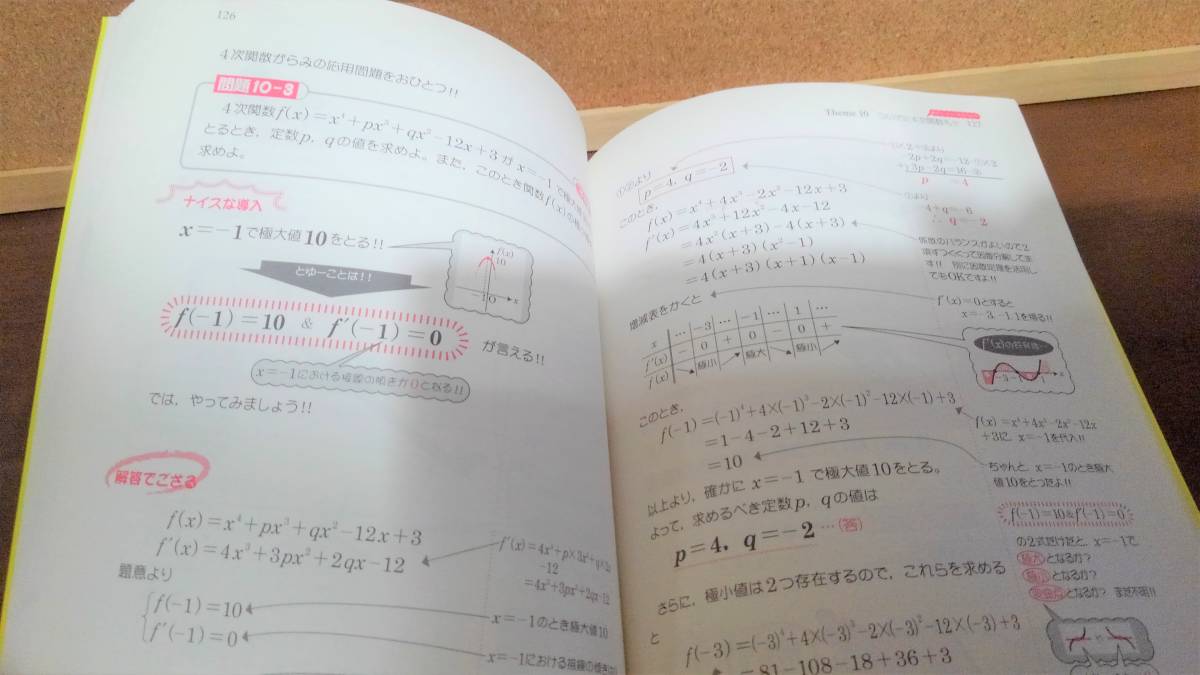 126
4次関数がらみの応用問題をおひとつ!!
問題10-3
4次関数f(x)=x⁴+px³+qx²-12x+3がx=-1で極大値
とるとき，定数p，qの値を求めよ。また，このとき関数f(x)の極
求めよ。
ナイスな導入
x=-1で極大値10をとる!!
f(x)
10
-1 0 x
とゆーことは!!
f(-1)=10 & f'(-1)=0 が言える!!
x=-1における接線の傾きが0となる!!
では，やってみましょう!!
解答でござる
f(x)=x⁴+px³+qx²-12x+3
f'(x)=4x³+3px²+2qx-12
f'(x)=4x³+p×3x²+q×2x
-12
=4x³+3px²+2qx-12
題意より
f(-1)=10
x=-1のとき極大値10
f'(-1)=0
x=-1における接線の傾きは
Theme 10
127
①②より
p=4, q=-2
このとき，
f(x)=x⁴+4x³-2x²-12x+3
f'(x)=4x³+12x²-4x-12
=4x²(x+3)-4(x+3)
=4(x+3)(x²-1)
=4(x+3)(x+1)(x-1)
2p+2q=-12
3p-2q=16
p =4
4+q=-6
∴ q=-2
係数のバランスがよいので2
項ずつくくって因数分解してま
す!! 別に因数定理を活用し
てもOKですよ!!
増減表をかくと
x … -3 … -1 … 1 …
f'(x) - 0 + 0 - 0 +
f(x) 極小 極大 極小
f'(x)=0とすると
x=-3, -1, 1を得る!!
-3 -1 1 x
このとき，
f(-1)=(-1)⁴+4×(-1)³-2×(-1)²-12×(-1)+3
=1-4-2+12+3
=10
f(x)=x⁴+4x³-2x²-12x
+3に，x=-1を代入!!
以上より，確かにx=-1で極大値10をとる。
よって，求めるべき定数p，qの値は
p=4, q=-2 …(答)
ちゃんと，x=-1のとき極大
値10をとったよ!!
f(-1)=10&f'(-1)=0
の2式だけだと，x=-1で
極大となるか?
極小となるか?
となるか? まだ不明!!
さらに，極小値は2つ存在するので，これらを求める
と
f(-3)=(-3)⁴+4×(-3)³-2×(-3)²-12×(-3)+3
=81-108-18+36+3